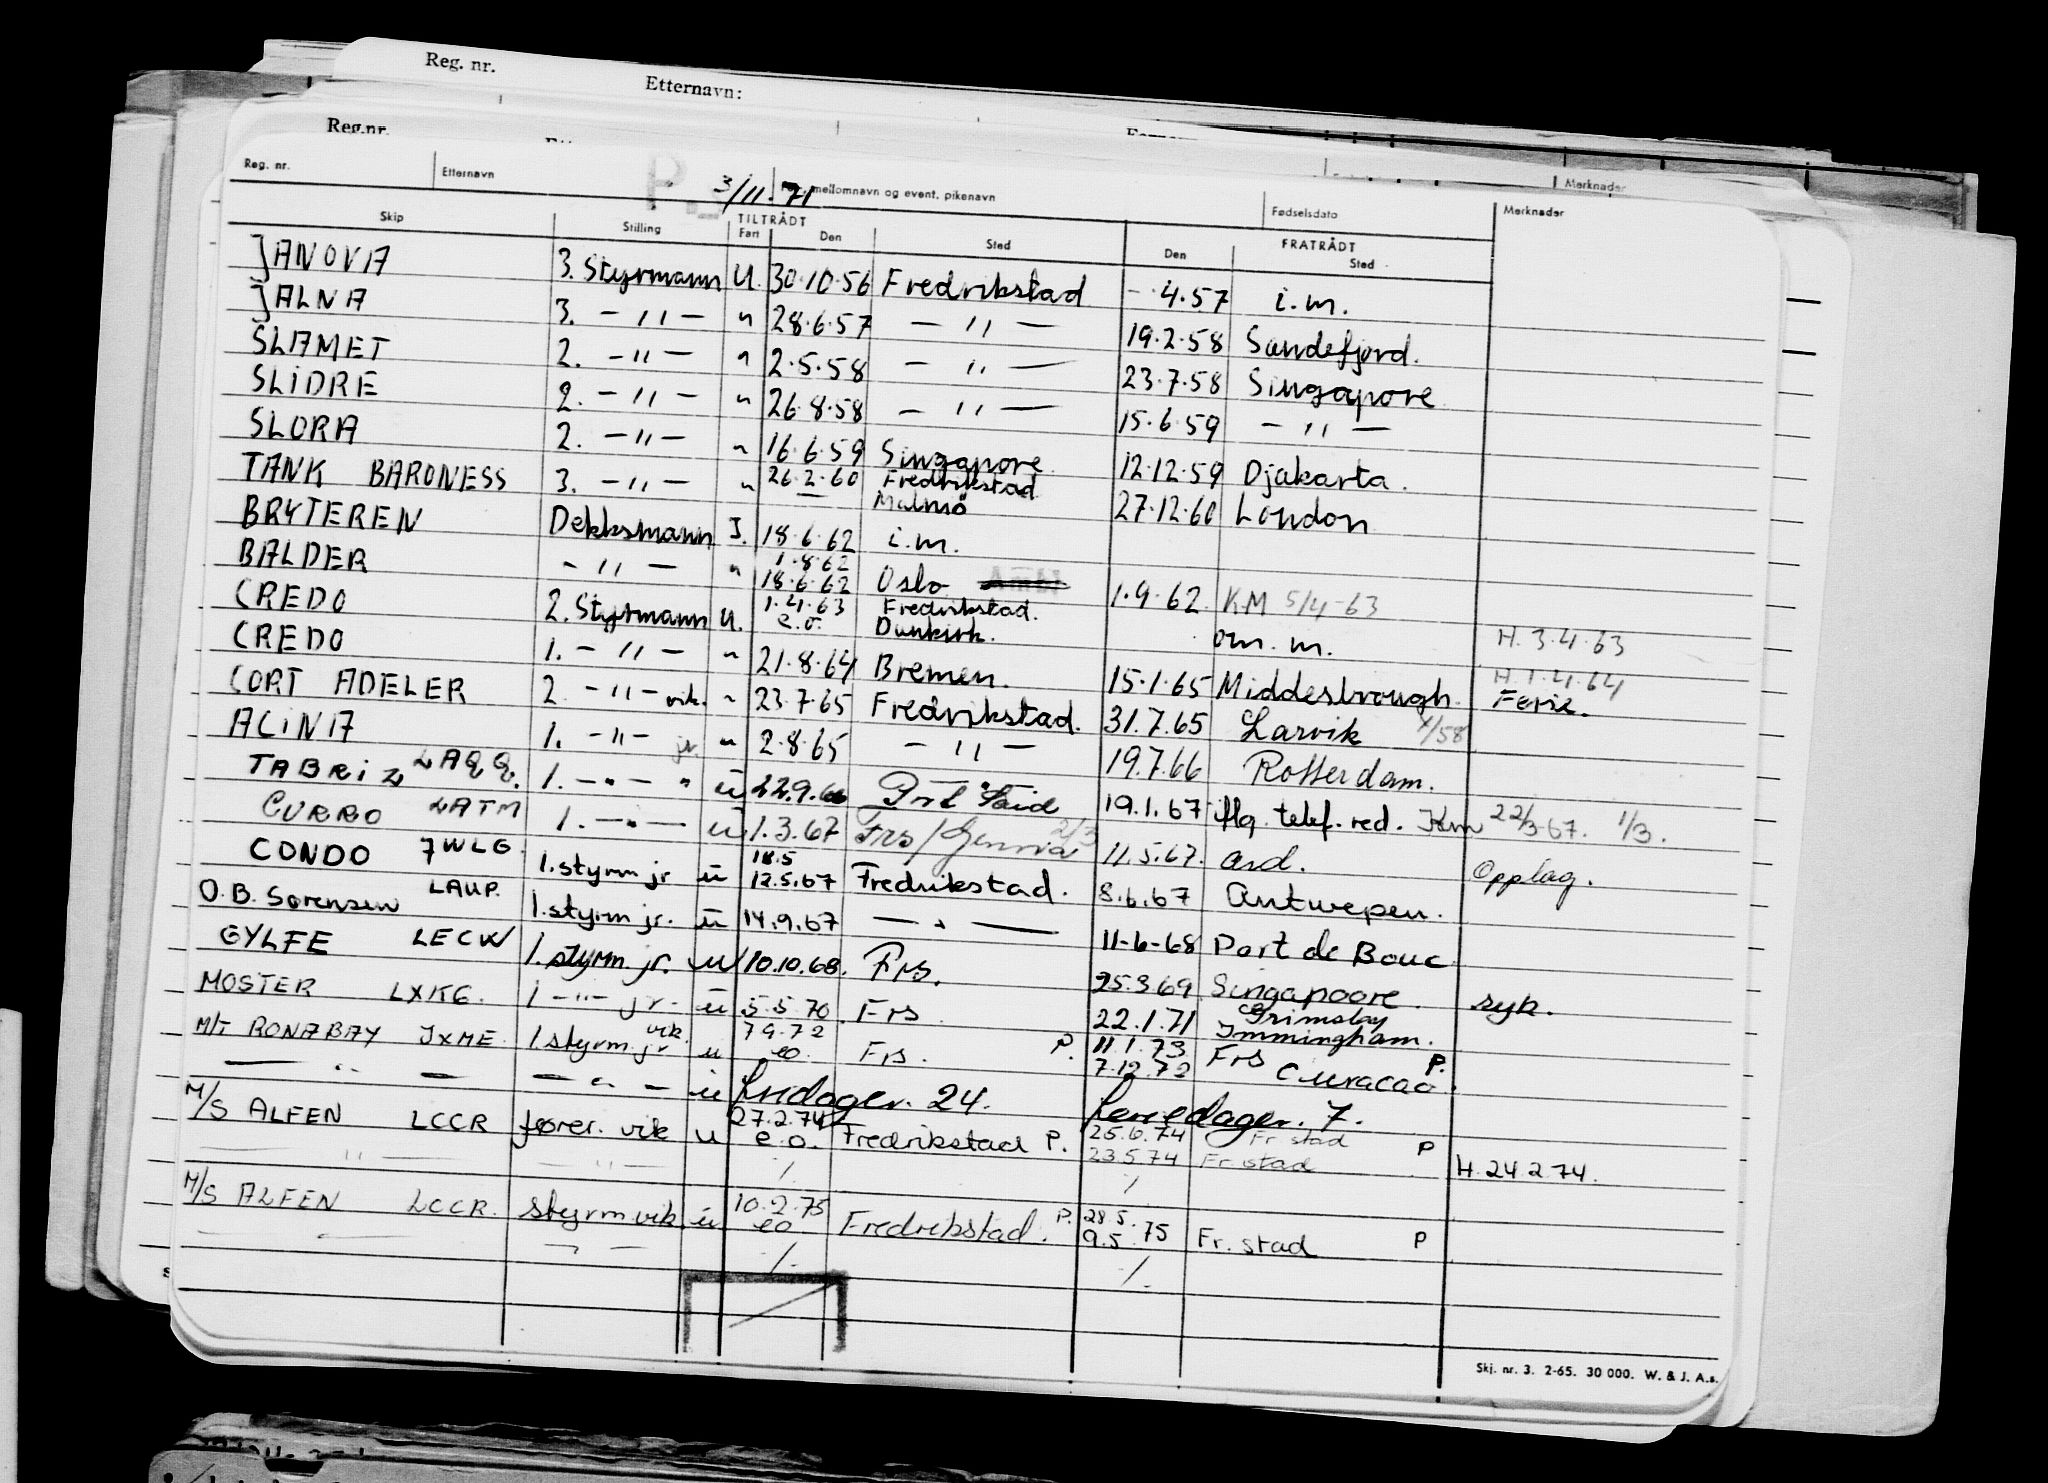 Reg. nr.
Etternavn:
Reg.nr.
Merknader
Reg. nr. Etternavn P. 3/11.71 mellomnavn og event. pikenavn Fødselsdato Merknader
Skip Stilling TILTRÅDT FRATRÅDT
Fart Den Sted Den Sted
JANOVA 3. Styrmann U. 30.10.56 Fredrikstad - .4.57 i.m.
JALNA 3. - " - " 28.6.57 - " - 19.2.58 Sandefjord.
SLAMET 2. - " - " 2.5.58 - " - 23.7.58 Singapore
SLIDRE 2. - " - " 26.8.58 - " - 15.6.59 - " -
SLORA 2. - " - " 16.6.59 Singapore 12.12.59 Djakarta.
TANK BARONESS 3. - " - " 26.2.60 Fredrikstad 27.12.60 London
— Malmö
BRYTEREN Dekksmann I. 18.6.62 i.m.
BALDER - " - " 1.8.62
18.6.62 Oslo 1.9.62 KM 5/4-63
CREDO 2. Styrmann U. 1.4.63 Fredrikstad. om. m. H. 3.4.63
e.o. Dunkirk.
CREDO 1. - " - " 21.8.64 Bremen. 15.1.65 Middesbrough. H.1.4.64
Ferie.
CORT ADELER 2. - " - vik. " 23.7.65 Fredrikstad. 31.7.65 Larvik
ALINA 1. - " - jr. " 2.8.65 - " - 19.7.66 Rotterdam.
TABRIZ LAQQ. 1. - " - " u 22.9.66 Port Said 19.1.67 iflg. telef. red. Km 22/3-67. 1/3.
CURRO LATM 1. - " - u 1.3.67 Frs/Genova 2/3 11.5.67. and. Opplag.
CONDO JWLG. 1. styrm jr u 18.5
12.5.67 Fredrikstad. 8.6.67 Antwepen.
O.B. Sørensen LAUP. 1. styrm jr. u 14.9.67 - " - 11-6-68 Port de Bouc
GYLFE LECW 1. styrm. jr. u 10.10.68. Frs. 25.3.69 Singapoore syk.
MOSTER LXKG. 1 - " - jr. u 5.5.70 Frs 22.1.71 Grimsby
Immingham.
M/T RONABAY JXME 1 styrm. jr vik. u 7.9.72
eo. Frs. P. 11.1.73 Frs P.
7.12.72 Curacao.
— " — — " — u fridager. 24. feriedager. 7.
M/S ALFEN LCCR fører. vik u 27.2.74
e.o. Fredrikstad P. 25.6.74 Fr stad P
23.5.74 Fr. stad H. 24.2.74.
— " — — " — /. /.
M/S ALFEN LCCR. styrm vik. u 10.2.75
eo Fredrikstad. P. 28.5.
9.5.75 Fr. stad P
— " — — " — /. /.
Skj. nr. 3. 2-65. 30 000. W. & J. A.s.